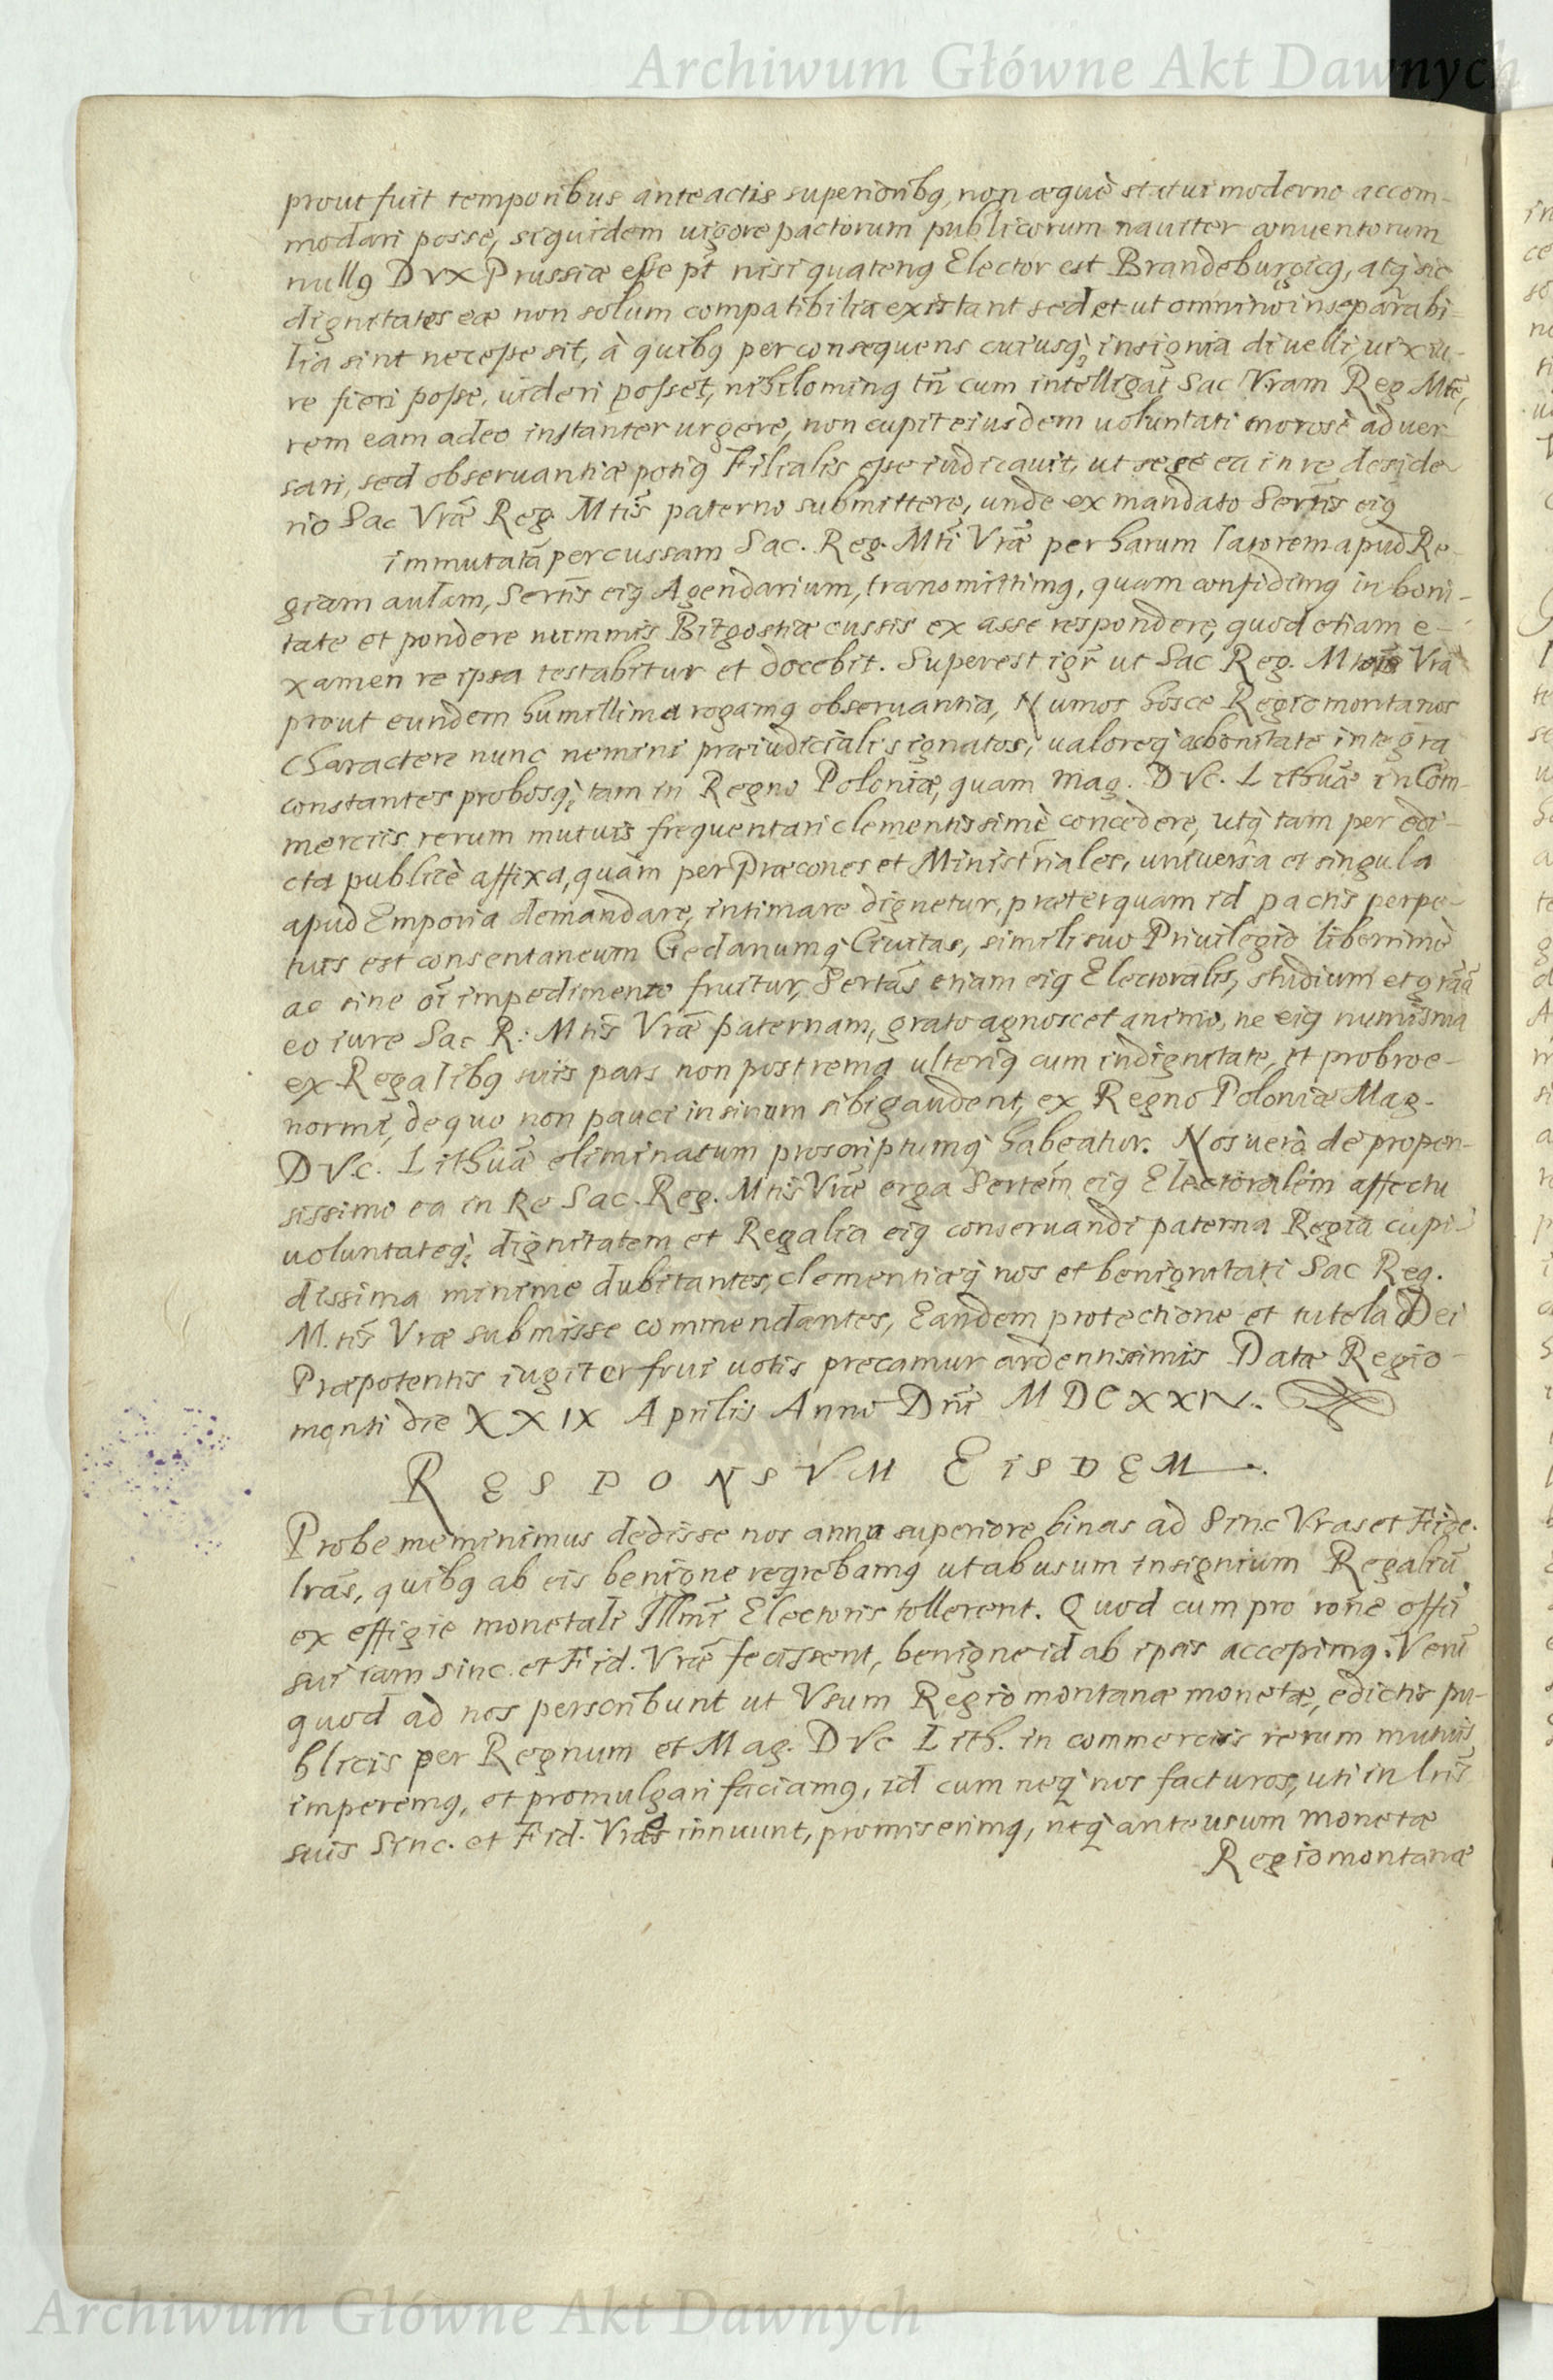 Archiwum Główne Akt Dawnych
prout fuit temporibus anteactis superioribꝯ, non æquè statui moderno accom-
modari posse, siquidem uigore pactorum publicorum nauiter conuentorum
nullꝯ DVX Prussiæ esse pt̃ nisi quatenꝯ Elector est Brandeburgicꝯ, atq̀ sic
dignitates eæ non solum compatibilia existant sed et ut omnino inseparabi-
lia sint necesse sit, à quibꝯ per consequens cuiusq̀; insignia diuelli, uix iu-
re fieri posse, uideri posset, nihilominꝯ tñ cum intelligat Sac Vram Reg Mtẽ,
rem eam adeo instanter urgere, non cupit eiusdem uoluntati morosè aduer-
sari, sed obseruantiæ potiꝯ Filialis esse iudicauit, ut sese ea in re deside-
rio Sac Vræ̃ Reg. Mtis̃ paterno submittere, unde ex mandato Sertis̃ eiꝯ
immutatã percussam Sac. Reg. Mti Vræ̃ per harum latorem apud Re-
giam aulam, Sertis̃ eiꝯ Agendarium, transmittimꝯ, quam confidimꝯ in boni-
tate et pondere nummis Bitgostiæ cussis ex asse respondere, quod etiam e-
xamen re ipsa testabitur et docebit. Superest igr̃ ut Sac Reg. Mtas̃ Vrã
prout eundem humillima rogamꝯ obseruantia, Numos hosce Regiomontanos
charactere nunc nemini præiudiciali signatos, ualoreq̀ ac bonitate integra
constantes probosq̀; tam in Regno Poloniæ, quam Mag. DVc. Lithuæ̃ in Com-
merciis rerum mutuis frequentari clementissimè concedere, utq̀ tam per edi-
cta publicè affixa, quàm per Præcones et Ministriales, uniuersa et singula
apud Emporia demandare, intimare dignetur, præterquam id pactis perpe-
tuis est consentaneum Gedanumq̀ Ciuitas, simili suo Priuilegio liberrimè
ac sine oĩ impedimento fruitur, Sertas̃ etiam eiꝯ Electoralis, studium et grãã
eo iure Sac R: Mtis̃ Vræ̃ paternam, grato agnoscet animo, ne eiꝯ numisma
ex Regalibꝯ suis pars non postrema ulteriꝯ cum indignitate, et probro e-
normi, de quo non pauci in sinum sibi gaudent, ex Regno Poloniæ Mag.
DVc. Lithuæ̃ eliminatum proscriptumq̀ habeatur. Nos uerò de propen-
sissimo ea in Re Sac. Reg. Mtis Vræ̃ erga Sertem̃ eiꝯ Electoralem affectu
uoluntateq̀; dignitatem et Regalia eiꝯ conseruandi paterna Regia cupi-
dissima minime dubitantes, clementiæq̀ nos et benignitati Sac Reg.
M.tis̃ Vræ submisse commendantes, Eandem protectione et tutela Dei
Præpotentis iugiter frui uotis precamur ardentissimis Datæ Regio-
monti die XXIX Aprilis Anno Dñi MDCXXIV.
RESPONSVM EISDEM.
Probe meminimus dedisse nos anno superiore binas ad Sinc Vras et Fide.
lrãs, quibꝯ ab eis benigne reqrebamꝯ ut abusum insignium Regaliũ
ex effigie monetali Illmi Electoris tollerent. Quod cum pro rone offi
sui iam Sinc. et Fid. Vræ̃ fecissent, benigne id ab ipsis accepimꝯ. Verũ
quod ad nos perscribunt ut Vsum Regiomontanæ monetæ, edictis pu-
blicis per Regnum et Mag. DVc Lith. in commerciis rerum mutuis
imperemꝯ, et promulgari faciamꝯ, id cum neq̀ nos facturos, uti in lris̃
suis Sinc. et Fid. Vræ innuunt, promiserimꝯ, neq̀ ante usum monetæ
Regiomontanæ
Archiwum Główne Akt Dawnych